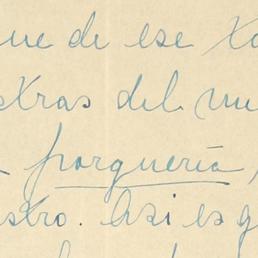 ue de ese
tras del
porquería,
stro. Asi es q